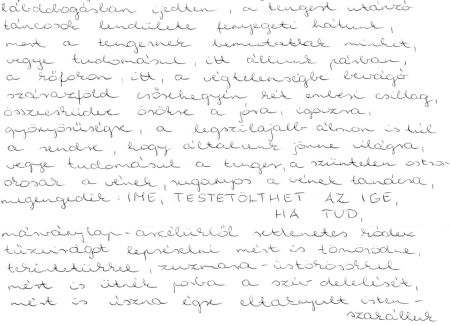 lábdobogásban ijedten, a tengert utánzó
táncosok lendülete fenyegeti hátunk,
mert a tengernek bemutattak minket,
vegye tudomásul, itt állunk párban,
a rőforon, itt, a végtelenségbe bevágó
szárazföld csőrhegyén két emberi csillag,
összecsendülve örökre a jóra, igazra,
gyönyörűségre, a legszilajabb álmon is túl
a rendre, hogy általunk jönne világra,
vegye tudomásul a tenger, a szüntelen ostrom
orosar a vének, sugaras a vének tanácsa,
megengedik: IME, TESTETÖLTHET AZ IGE,
HA TUD,
márványlap-arcélűről settenetes ródex
tűzvirágot lepréselni mért is tömörödne,
térintettükkel, zuzmara-üstökösökkel
mért is ütnék pofba a szív delelését,
mért is úszna égre eltárgyult isten-
szarállur